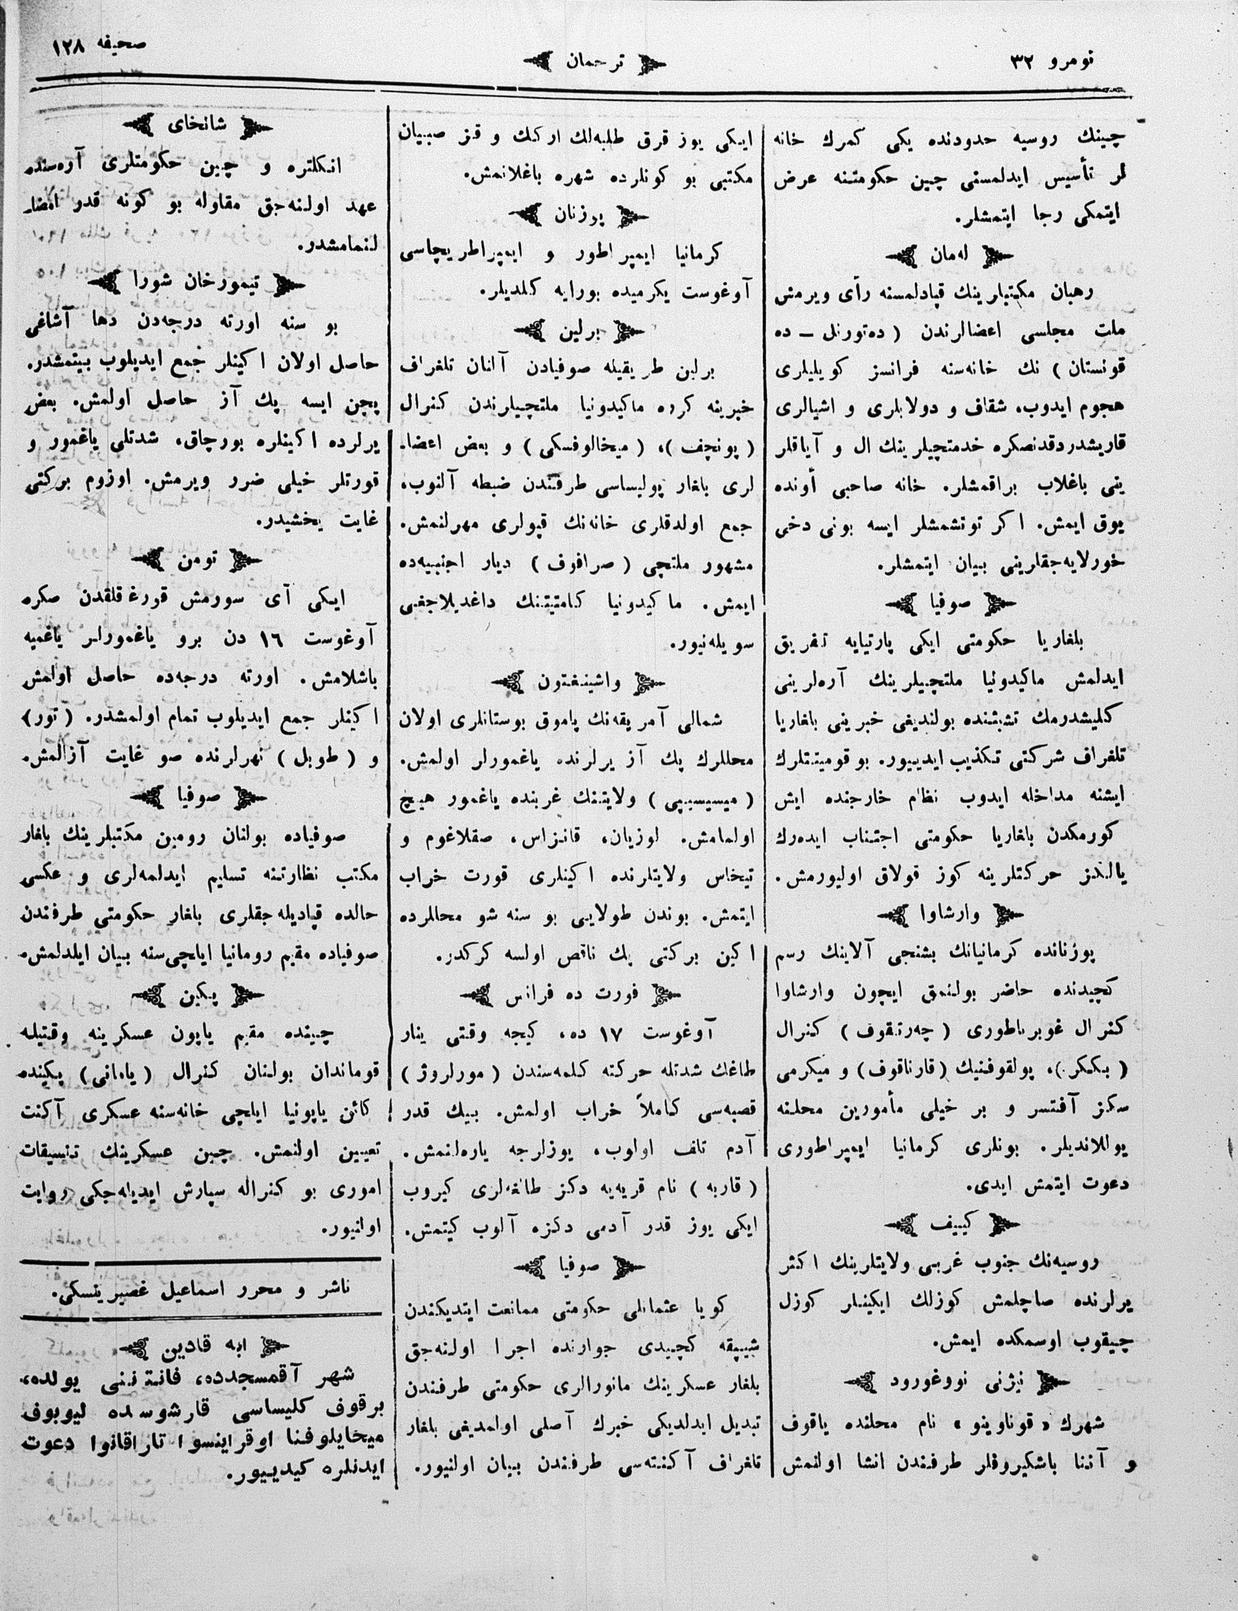 نومرو ٣٢
ترجمان
صحیفه ١٢٨
چینك روسیه حدودنده یکی کمرك خانه
لر تأسیس ایدلمسنی چین حکومتنه عرض
ایتمکی رجا ایتمشلر.
له‌مان
رهبان مکتبلرینك قپادلمسنه رأی ویرمش
ملت مجلسی اعضالرندن (ده‌تورنل ــ ده
قونستان) نك خانه‌سنه فرانسز کویلیلری
هجوم ایدوب، شقاف و دولابلری و اشیالری
قاریشدردقدنصکره خدمتچیلرینك ال و آیاقلر
ینی باغلاب براقمشلر. خانه صاحبی أونده
یوق ایمش. اکر توتشمشلر ایسه بونی دخی
خورلایه‌جقلرینی بیان ایتمشلر.
صوفیا
بلغاریا حکومتی ایکی پارتیایه تفریق
ایدلمش ماکیدونیا ملتچیلرینك آره‌لرینی
کلیشدرمك تشبثنده بولندیغی خبرینی بلغاریا
تلغراف شرکتی تکذیب ایدییور. بو قومیتتلرك
ایشنه مداخله ایدوب نظام خارجنده ایش
کورمکدن بلغاریا حکومتی اجتناب ایده‌رك
یالکز حرکتلرینه کوز قولاق اولیورمش.
وارشاوا
پوزنانده کرمانیانك بشنجی آلاینك رسم
کچیدنده حاضر بولنمق ایچون وارشاوا
کنرال غوبرناطوری (چه‌رتقوف) کنرال
پولقوفنیك (قارناقوف) و میکرمی
سکز آفتسر و بر خیلی مأمورین محلنه
یوللاندیلر. بونلری کرمانیا ایمپراطوری
دعوت ایتمش ایدی.
کییف
روسیه‌نك جنوب غربی ولایتلرینك اکثر
یرلرنده صاچلمش کوزلك ایکینلر کوزل
چیقوب اوسمکده ایمش.
نیژنی نووغورود
شهرك «قوناوینو» نام محلنده یاقوف
و آننا باشکیروفلر طرفندن انشا اولنمش
ایکی یوز قرق طلبه‌لك ارکك و قز صبیان
مکتبی بو کونلرده شهره باغلانمش.
پوزنان
کرمانیا ایمپراطور و ایمپراطریچاسی
آوغوست یکرمیده بورایه کلدیلر.
برلین
برلین طریقیله صوفیادن آلنان تلغراف
خبرینه کره ماکیدونیا ملتچیلرندن کنرال
(پونچف)، (میخالوفسکی) و بعض اعضا
لری بلغار پولیساسی طرفندن ضبطه آلنوب،
جمع اولدقلری خانه‌نك قپولری مهرلنمش.
مشهور ملتچی (صرافوف) دیار اجنبیه‌ده
ایمش. ماکیدونیا کامتیتنك داغدیلاجغی
سویله‌نیور.
واشینغتون
شمالی آمریقه‌نك پاموق بوستانلری اولان
محللرك پك آز یرلرنده یاغمورلر اولمش.
(میسیسیپی) ولایتنك غربنده یاغمور هیچ
اولمامش. لوزیان، قانزاس، صقلاغوم و
تیخاس ولایتلرنده اکینلری قورت خراب
ایتمش. بوندن طولایی بو سنه شو محللرده
اکین برکتی پك ناقص اولسه کرکدر.
فورت ده فرانس
آوغوست ١٧ ده، کیجه وقتی ینار
طاغك شدتله حرکته کلمه‌سندن (مورلروژ)
قصبه‌سی کاملاً خراب اولمش. بیك قدر
آدم تلف اولوب، یوزلرجه یاره‌لنمش.
(قاربه) نام قریه‌یه دکز طالغه‌لری کیروب
ایکی یوز قدر آدمی دکزه آلوب کیتمش.
صوفیا
کویا عثمانلی حکومتی ممانعت ایتدیکندن
شیپقه کچیدی جوارنده اجرا اولنه‌جق
بلغار عسکرینك مانورالری حکومتی طرفندن
تبدیل ایدلدیکی خبرك آصلی اولمدیغی بلغار
تلغراف آکنته‌سی طرفندن بیان اولنیور.
شانخای
انکلتره و چین حکومتلری آره‌سنده
عهد اولنه‌جق مقاوله بو کونه قدر امضا
لنمامشدر.
تیمورخان شورا
بو سنه اورته درجه‌دن دها آشاغی
حاصل اولان اکینلر جمع ایدیلوب بیتمشدر.
پچن ایسه پك آز حاصل اولمش. بعض
یرلرده اکینلره بورچاق، شدتلی یاغمور و
قورتلر خیلی ضرر ویرمش. اوزوم برکتی
غایت یخشیدر.
تومن
ایکی آی سورمش قورغقلقدن صکره
آوغوست ١٦ دن برو یاغمورلر یاغمیه
باشلامش. اورته درجه‌ده حاصل اولمش
اکینلر جمع ایدیلوب تمام اولمشدر. (تور)
و (طوبل) نهرلرنده صو غایت آزالمش.
صوفیا
صوفیاده بولنان رومین مکتبلرینك بلغار
مکتب نظارتنه تسلیم ایدلمه‌لری و عکسی
حالده قپادیله‌جقلری بلغار حکومتی طرفندن
صوفیاده مقیم رومانیا ایلچی‌سنه بیان ایلدلمش.
پکین
چینده مقیم یاپون عسکرینه وقتیله
قوماندان بولنان کنرال (یامانی) پکینده
کائن یاپونیا ایلچی خانه‌سنه عسکری آکنت
تعیین اولنمش. چین عسکرینك تنسیقات
اموری بو کنراله سپارش ایدیله‌جکی روایت
اولنیور.
ناشر و محرر اسماعیل غصپرینسکی.
ابه قادین
شهر آقمسجدده، فانتننی یولده،
برقوف کلیساسی قارشوسده لیوبوف
میخایلوفنا اوقراینسوا تاراقانوا دعوت
ایدنلره کیدییور.